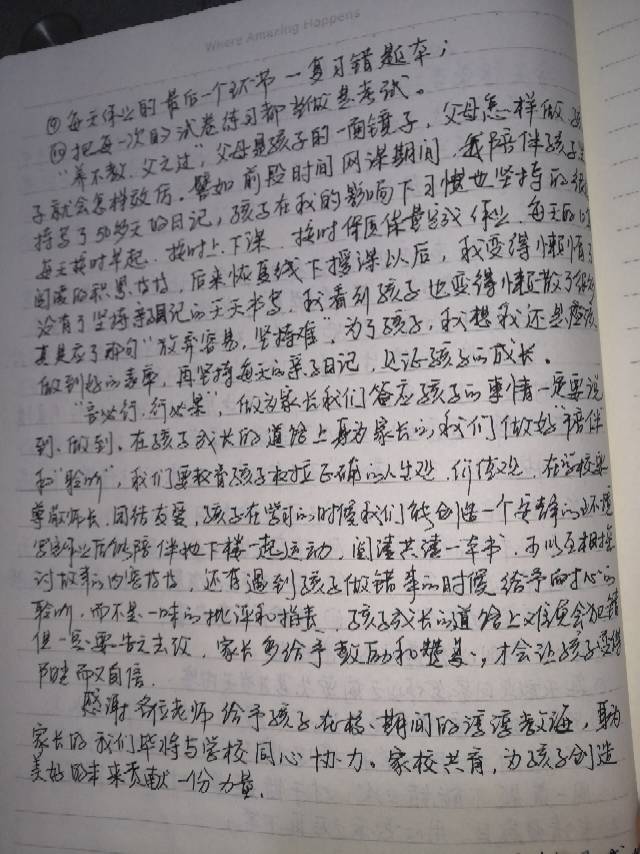 Where Amazing Happens
⑨每天作业的最后一个环节－复习错题本；
⑩把每一次的试卷练习都当做是考试。
“养不教，父之过”，父母是孩子的一面镜子，父母怎样做，孩
子就会怎样效仿。譬如前段时间网课期间，我陪伴孩子坚
持写了50多天的日记，孩子在我的影响下习惯也坚持的很
每天按时早起、按时上、下课、按时保质保量完成作业、每天的
阅读的积累等等，后来恢复线下授课以后，我变得懒惰了
没有了坚持亲子日记的天天书写，我看到孩子也变得懒散了
真是应了那句“放弃容易，坚持难”。为了孩子，我想我还是应该
做到好的表率，再坚持每天的亲子日记，见证孩子的成长。
“言必行，行必果”，做为家长我们答应孩子的事情一定要说
到、做到、在孩子成长的道路上身为家长的我们做好“陪伴
和“聆听”，我们要教育孩子树立正确的人生观、价值观，在学校要
尊敬师长、团结友爱，孩子在学习的时候我们能创造一个安静的环境
写完作业后能陪伴地下楼一起运动，阅读共读一本书，可以互相探
讨故事的内容等等，还有遇到孩子做错事的时候给予耐心的
聆听，而不是一味的批评和指责，孩子成长的道路上难免会犯错
但一定要先去改，家长多给予鼓励和赞美，才会让孩子变得
阳光而又自信。
感谢各位老师给予孩子在校期间的谆谆教诲，身为
家长的我们毕将与学校同心协力。家校共育，为孩子创造
美好的未来贡献一份力量。